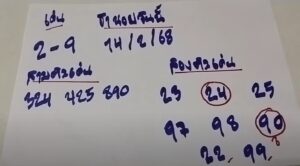 เด่น ฮานอยวันนี้
2-9 14/2/68
สามตัวเด่น สองตัวเด่น
324 425 890 23 24 25
97 98 90
22 99